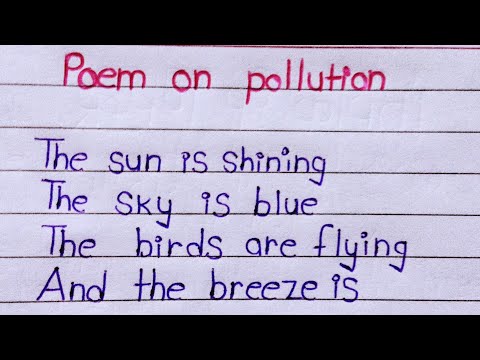 Poem on pollution
The sun is shining
The sky is blue
The birds are flying
And the breeze is